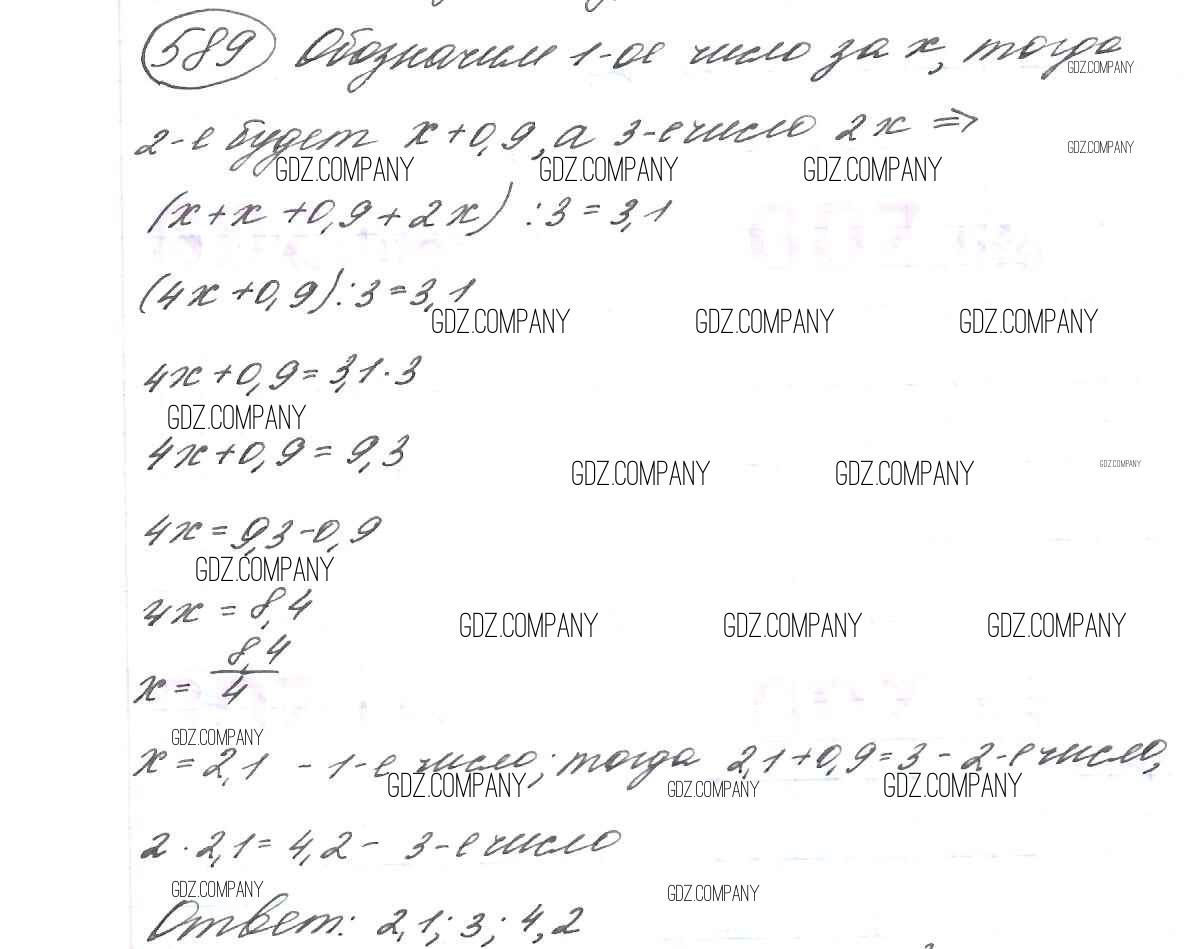 589 Обозначим 1-ое число за x, тогда
GDZ.COMPANY
2-е будет x+0,9, а 3-е число 2x =>
GDZ.COMPANY
GDZ.COMPANY GDZ.COMPANY GDZ.COMPANY
(x+x+0,9+2x) :3=3,1
(4x+0,9):3=3,1
GDZ.COMPANY GDZ.COMPANY GDZ.COMPANY
4x+0,9=3,1·3
GDZ.COMPANY
4x+0,9=9,3
GDZ.COMPANY GDZ.COMPANY GDZ.COMPANY
4x=9,3-0,9
GDZ.COMPANY
4x=8,4
GDZ.COMPANY GDZ.COMPANY GDZ.COMPANY
x=8,4/4
GDZ.COMPANY
x=2,1 - 1-е число; тогда 2,1+0,9=3 - 2-е число,
GDZ.COMPANY GDZ.COMPANY GDZ.COMPANY
2·2,1=4,2 - 3-е число
GDZ.COMPANY GDZ.COMPANY
Ответ: 2,1; 3; 4,2